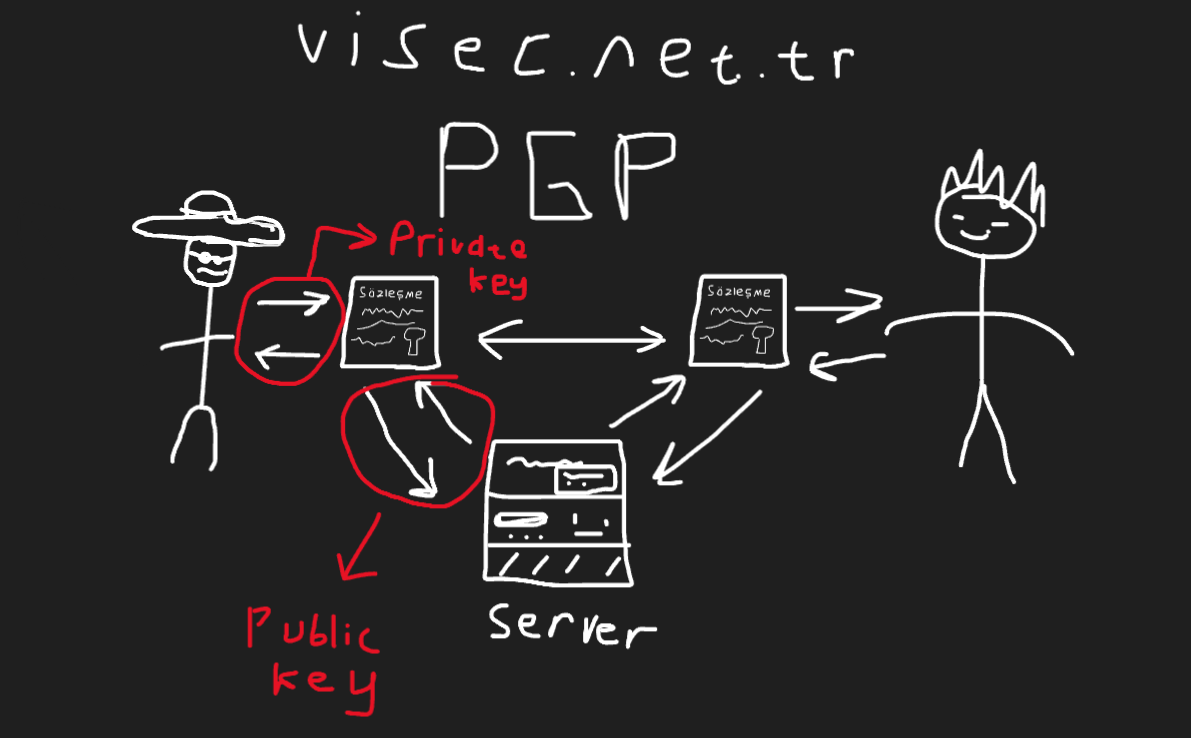 visec.net.tr
PGP
Private
key
Sözleşme
Sözleşme
server
Public
key